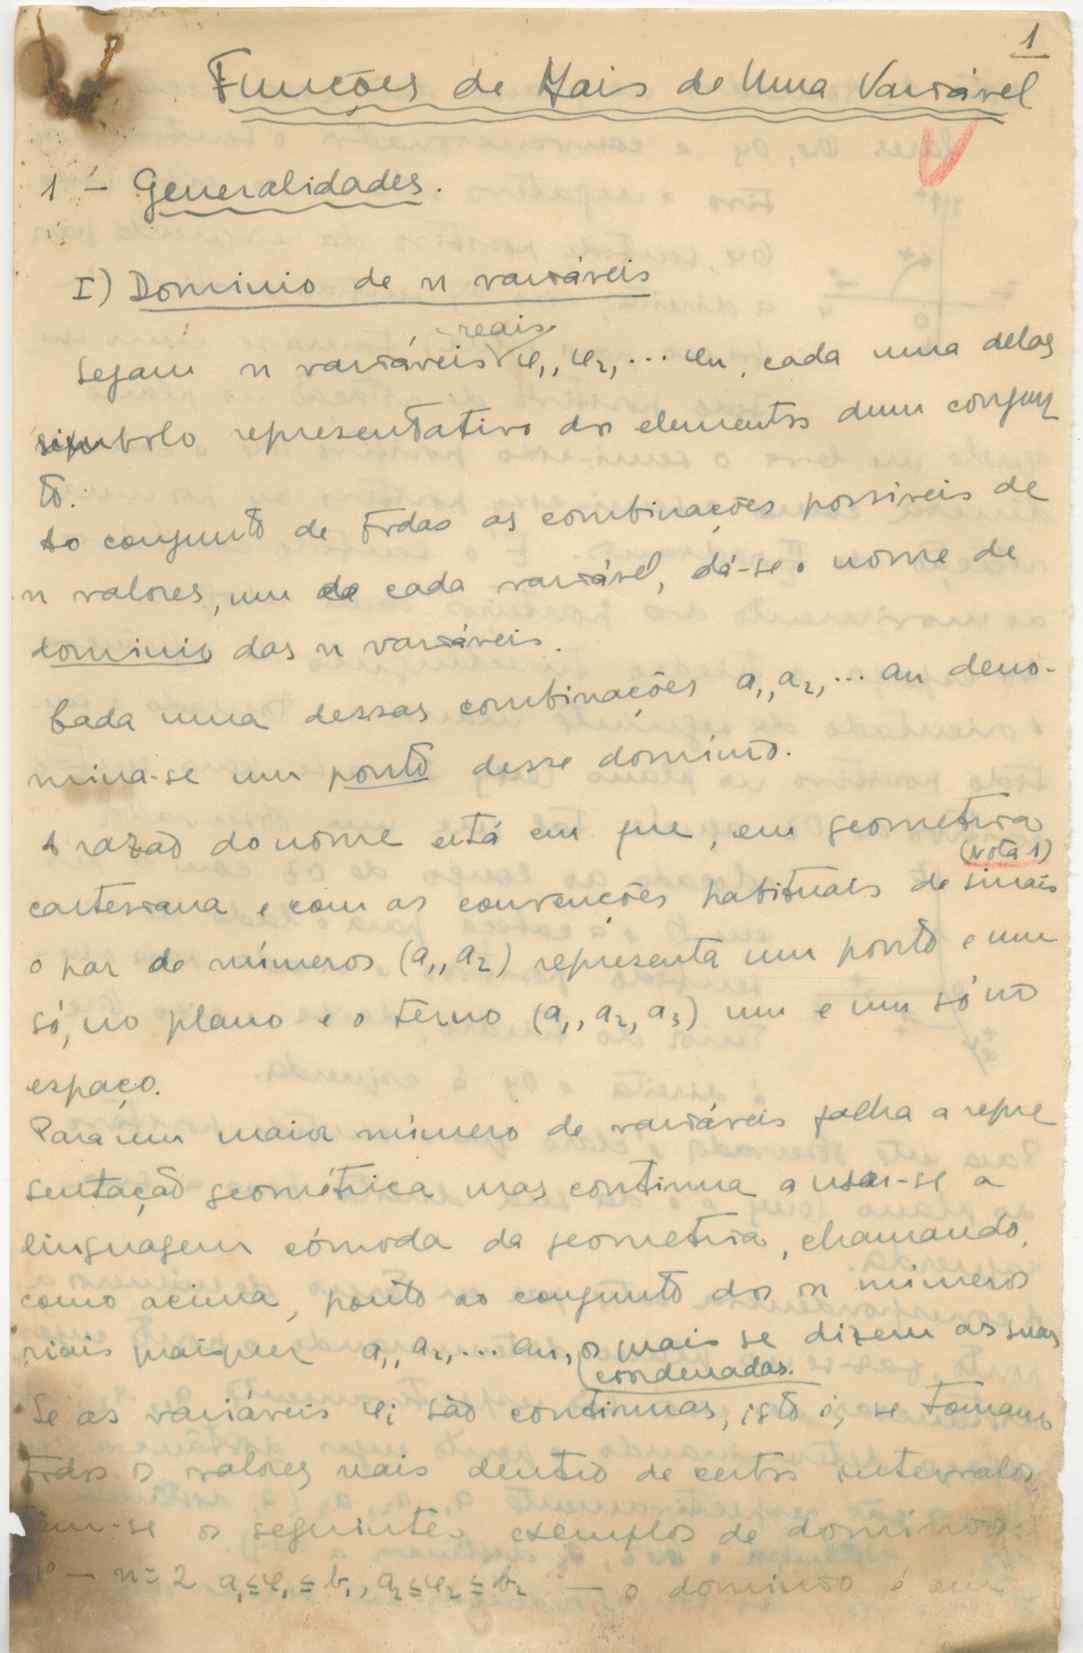 1
Funções de Mais de Uma Variável
1 – Generalidades.
I) Dominio de n variáveis
reais
Sejam n variáveis x₁, x₂, ... xn, cada uma delas
simbolo representativo dos elementos dum conjun
to.
Ao conjunto de todas as combinações possiveis de
n valores, um de cada variável, dá-se o nome de
dominio das n variáveis.
Cada uma dessas combinações a₁, a₂, ... an deno-
mina-se um ponto desse dominio.
A razão do nome está em que, em geometria
(Nota 1)
cartesiana e com as convenções habituais de sinais
o par de números (a₁, a₂) representa um ponto e um
só, no plano e o terno (a₁, a₂, a₃) um e um só no
espaço.
Para um maior número de variáveis falha a repre
sentação geométrica mas continua a usar-se a
linguagem cómoda da geometria, chamando,
como acima, ponto ao conjunto dos n números
reais quaisquer a₁, a₂, ... an, os quais se dizem as suas
coordenadas.
Se as variáveis xi são continuas, isto é, se tomam
todos os valores reais dentro de certos intervalos,
tem-se os seguintes exemplos de dominios:
1º – n = 2 a₁ ≤ x₁ ≤ b₁, a₂ ≤ x₂ ≤ b₂ – o dominio é um